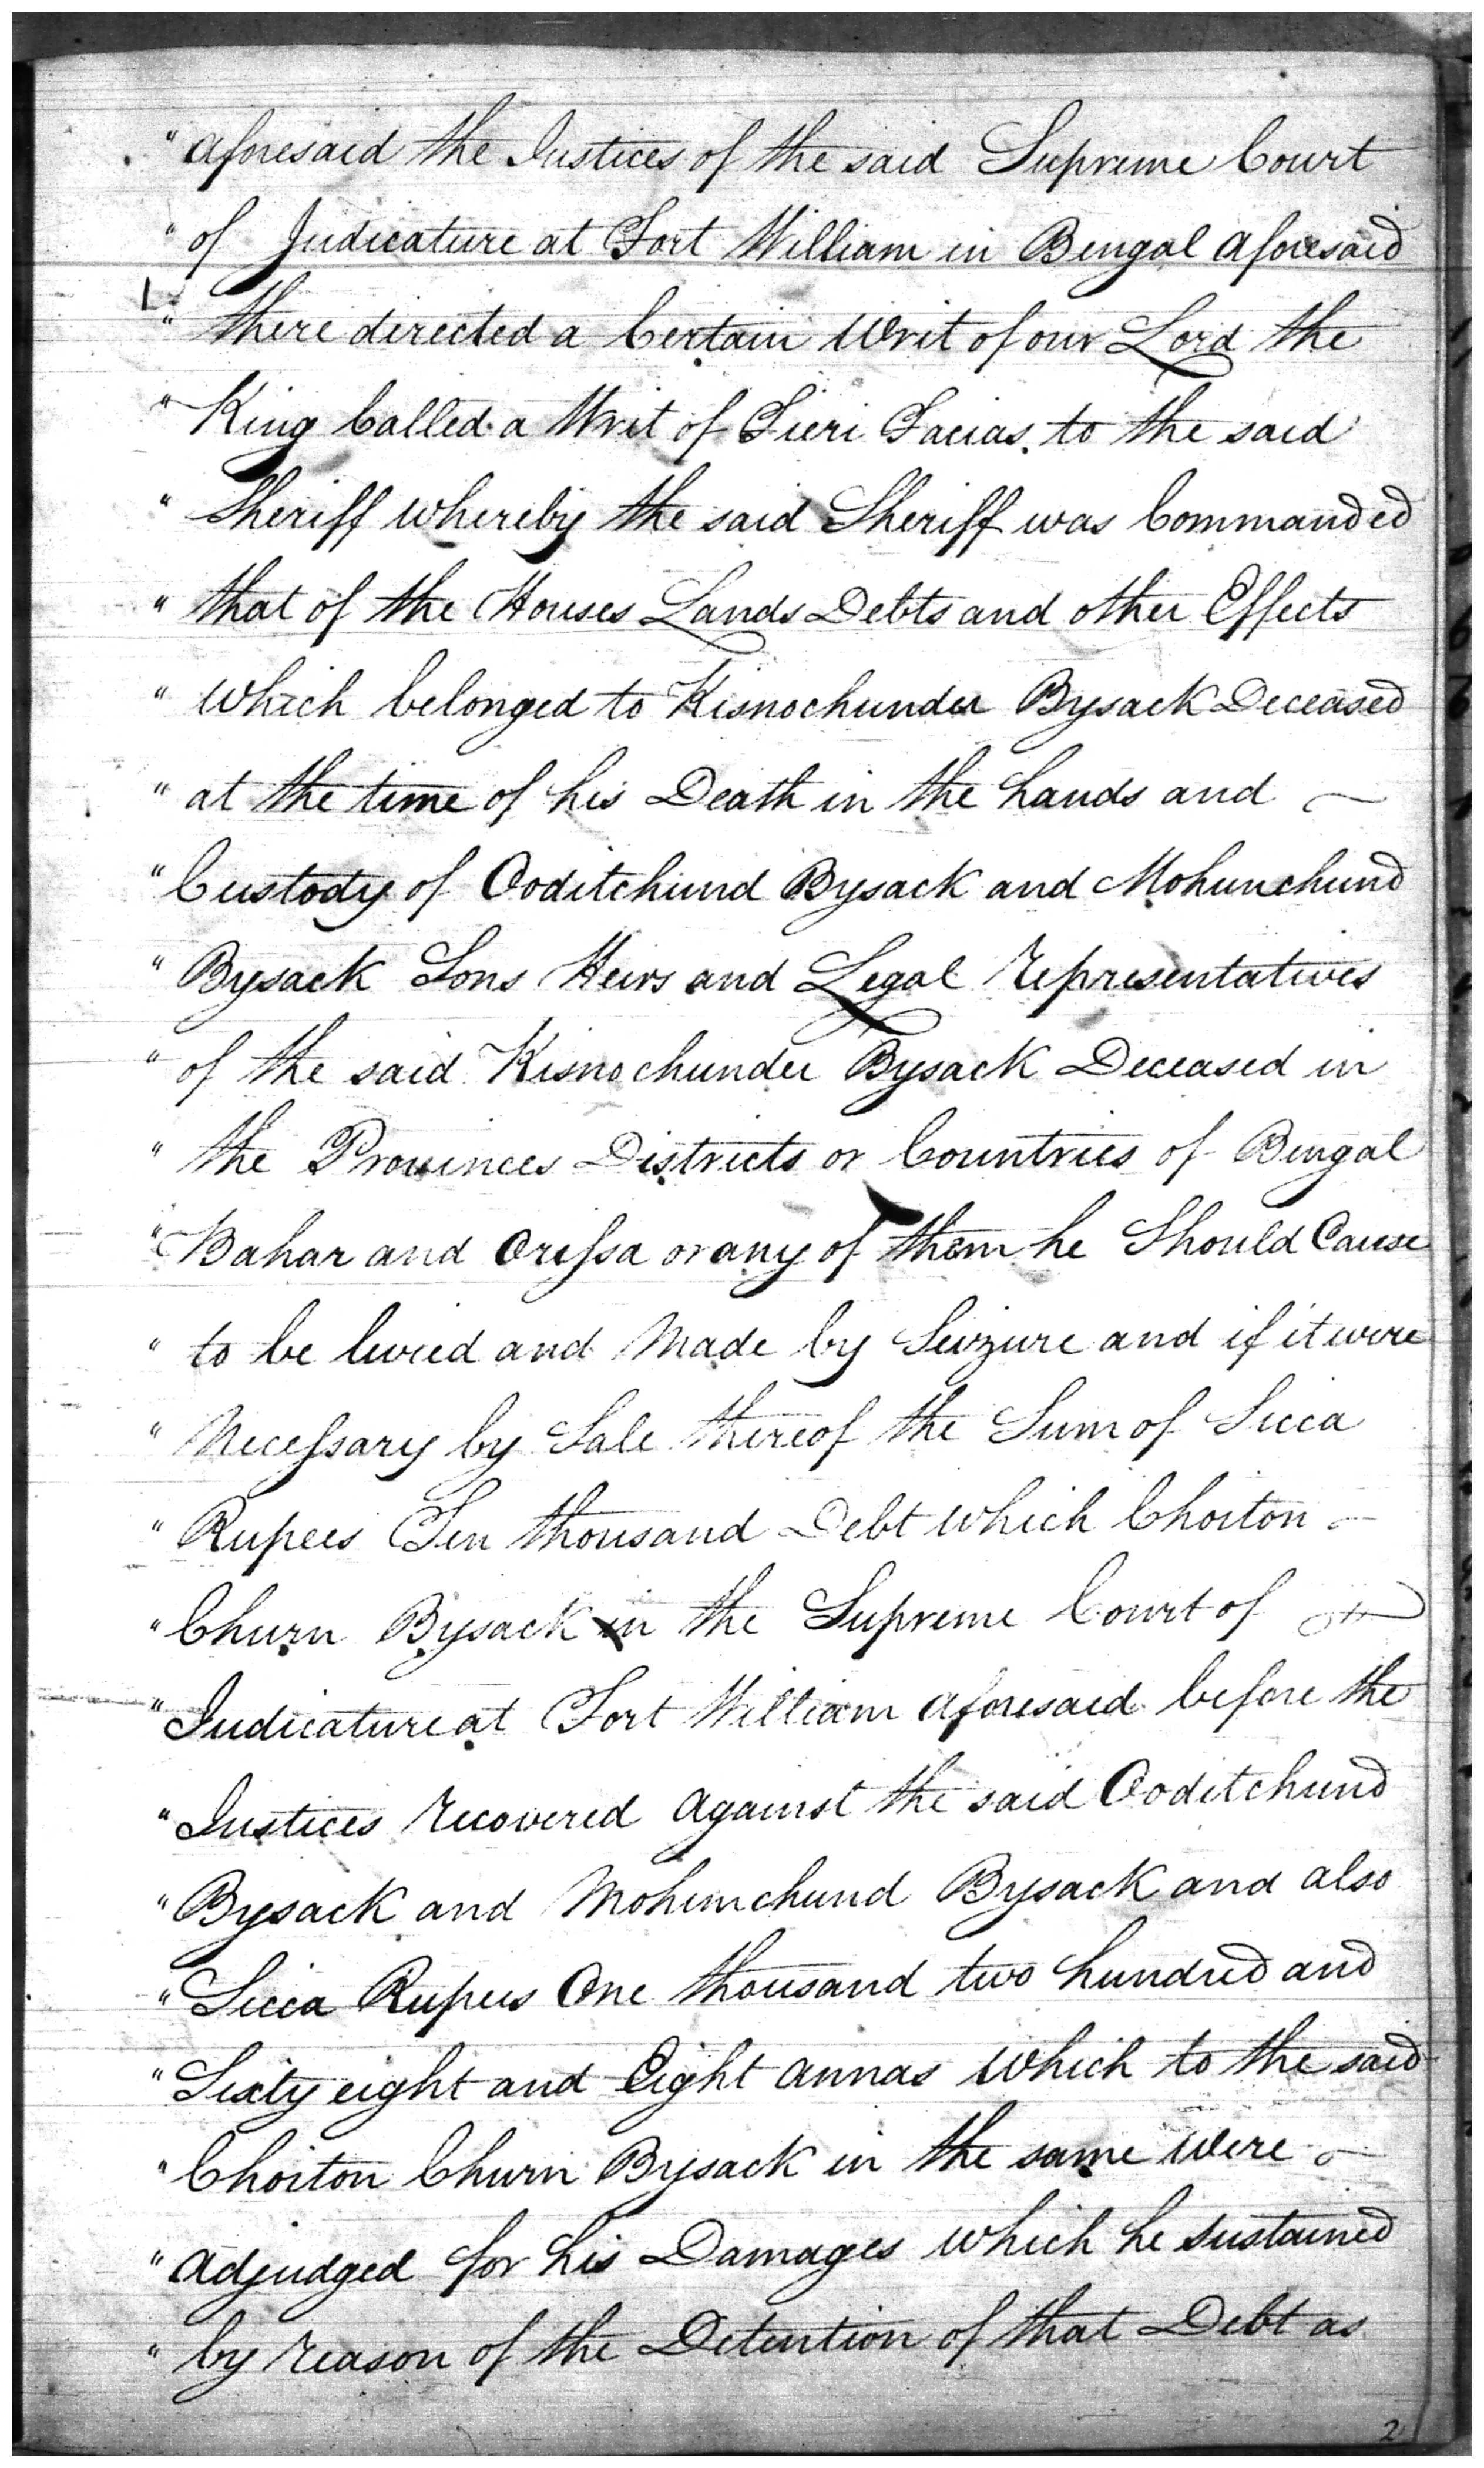 " aforesaid the Justices of the said Supreme Court
" of Judicature at Fort William in Bengal aforesaid
" there directed a Certain Writ of our Lord the
" King Called a Writ of Fieri Facias to the said
" Sheriff whereby the said Sheriff was Commanded
" that of the Houses Lands Debts and other Effects
" which belonged to Kisnochunder Bysack Deceased
" at the time of his Death in the hands and
" Custody of Ooditchund Bysack and Mohunchund
" Bysack Sons Heirs and Legal representatives
" of the said Kisnochunder Bysack Deceased in
" the Provinces Districts or Countries of Bengal
" Bahar and Orifsa or any of them he Should Cause
" to be levied and Made by Seizure and if it were
" Necefsary by Sale thereof the Sum of Sicca
" Rupees Ten thousand Debt which Choiton
" Churn Bysack in the Supreme Court of
" Judicature at Fort William aforesaid before the
" Justices recovered against the said Ooditchund
" Bysack and Mohunchund Bysack and also
" Sicca Rupees One thousand two hundred and
" Sixty eight and Eight annas which to the said
" Choiton Churn Bysack in the same were
" adjudged for his Damages which he sustained
" by reason of the Detention of that Debt as
2